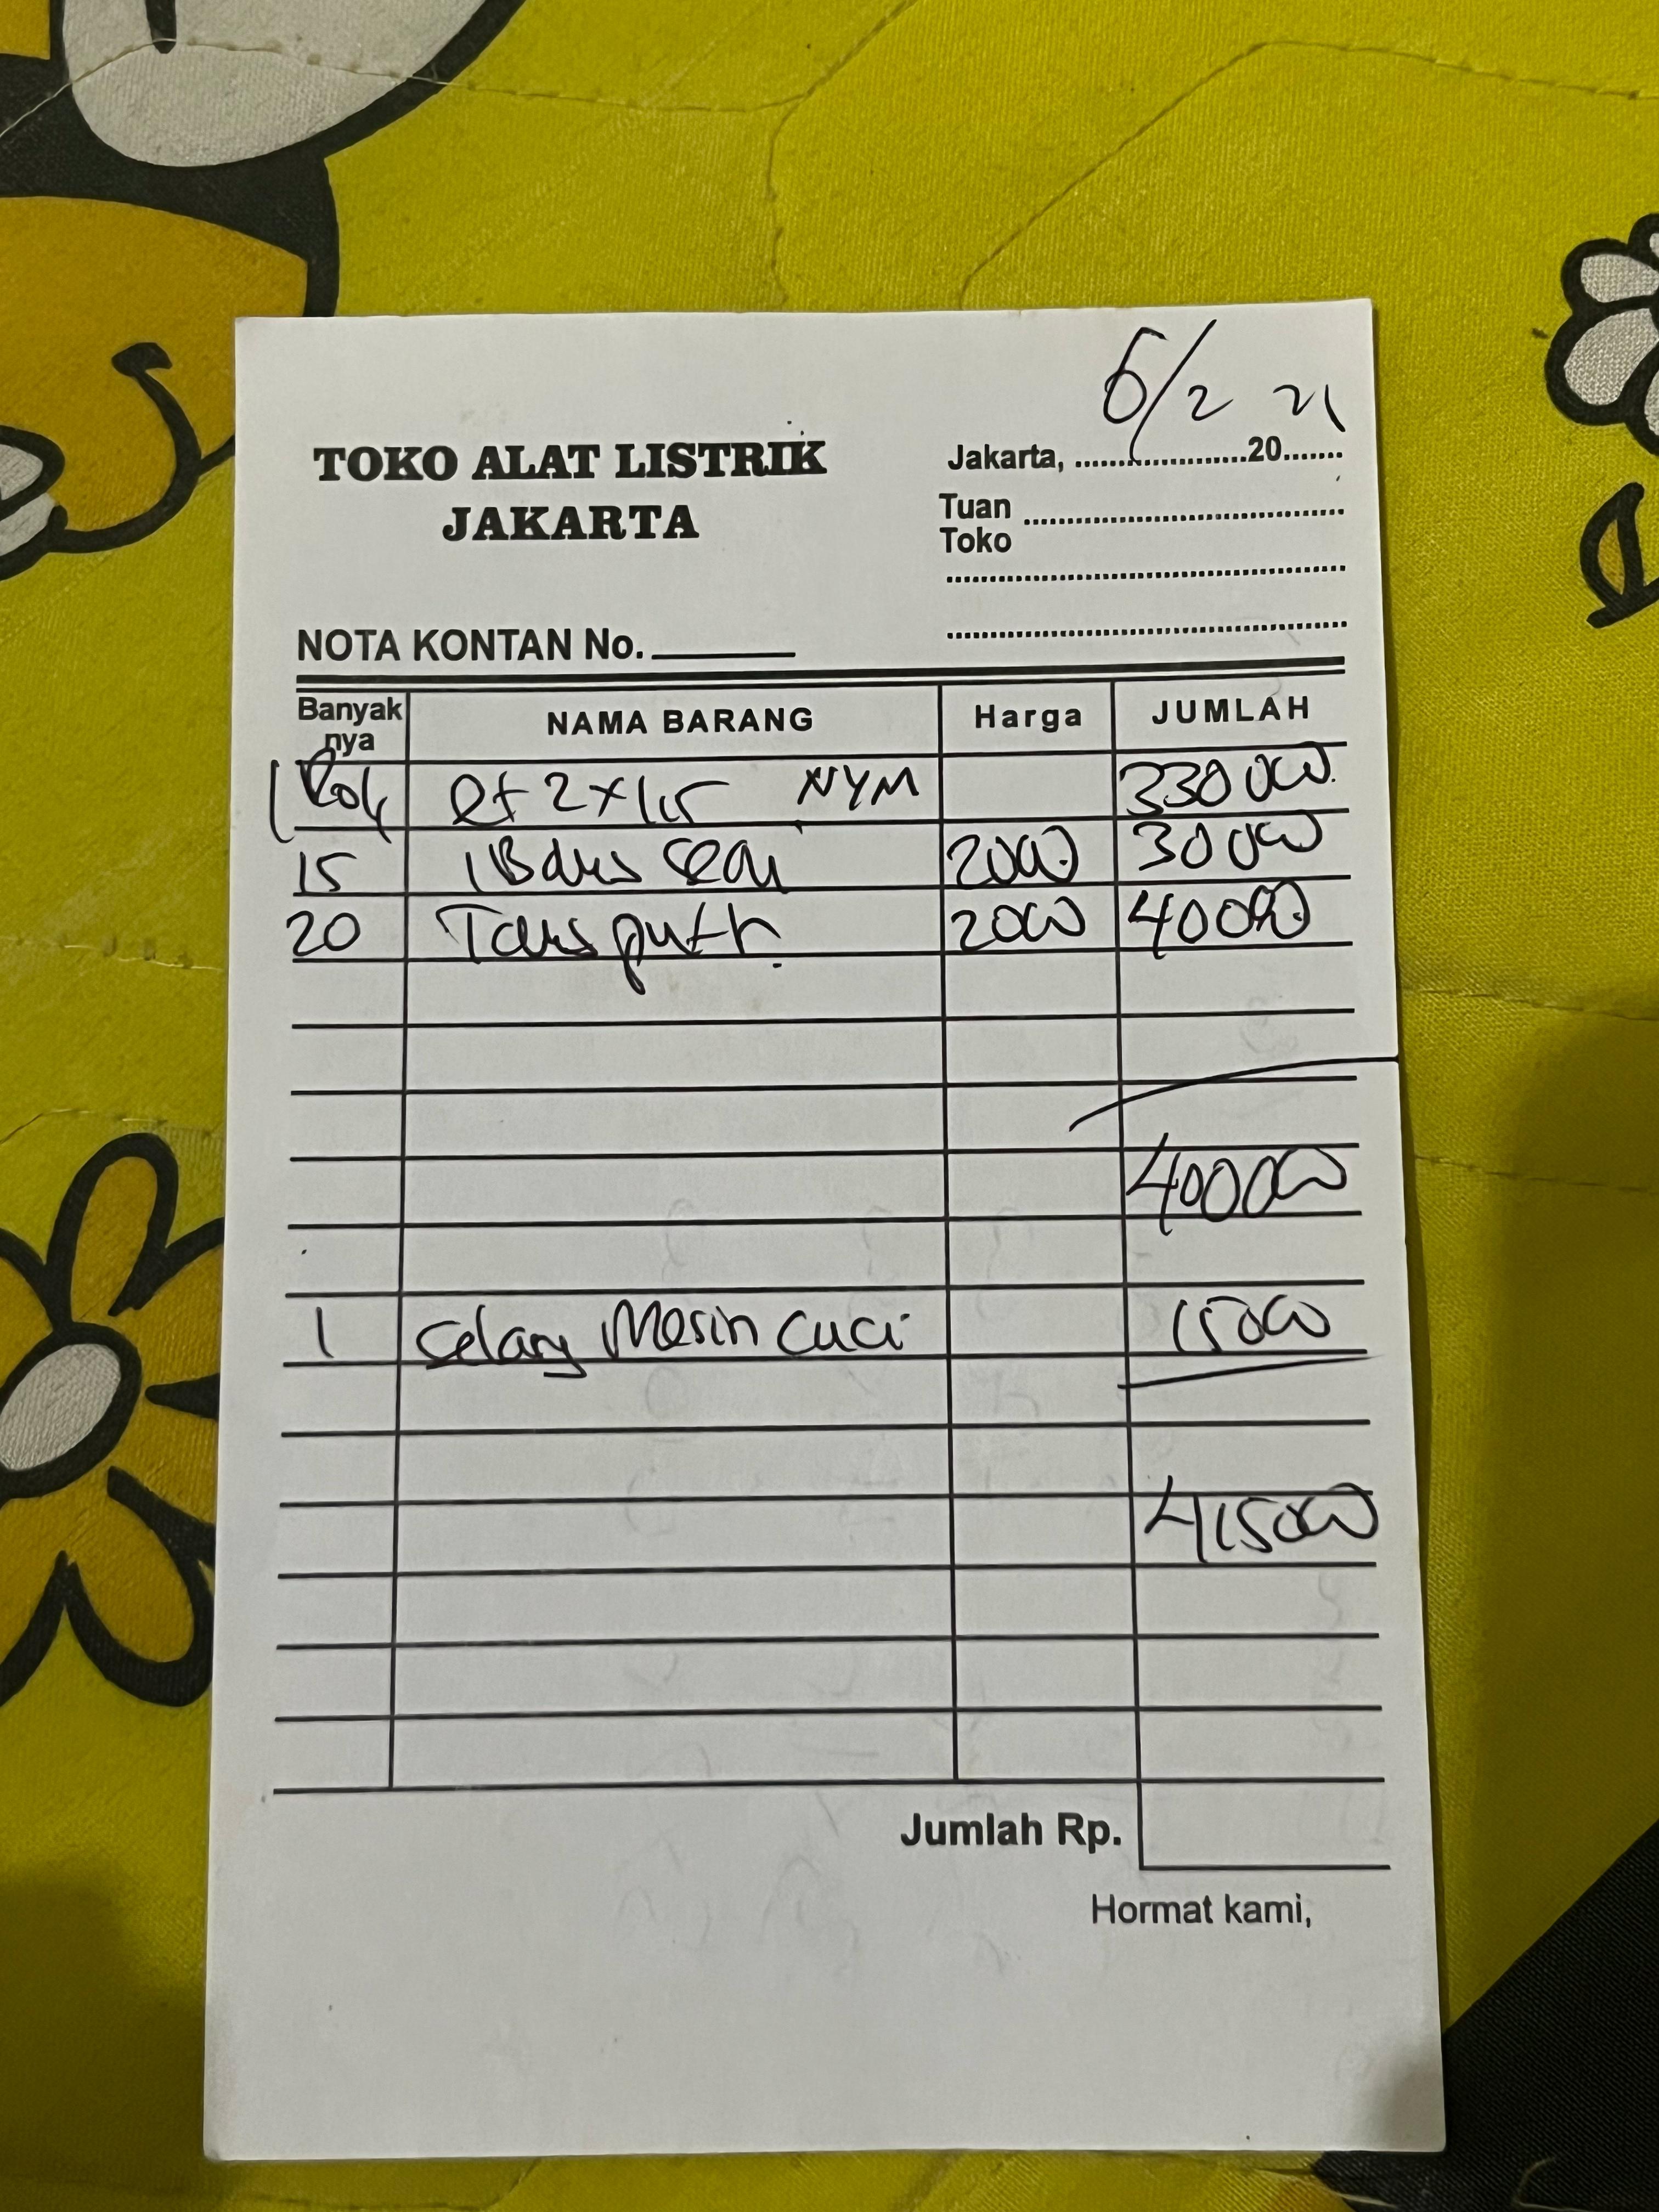 6/2 21
TOKO ALAT LISTRIK
JAKARTA
Jakarta, ....................20.......
Tuan
Toko
NOTA KONTAN No.
Banyak nya NAMA BARANG Harga JUMLAH
1 Rol 2x1,5 NYM 330000
15 2000 30000
20 putih 2000 40000
400000
1 Selang Mesin cuci 15000
415000
Jumlah Rp.
Hormat kami,